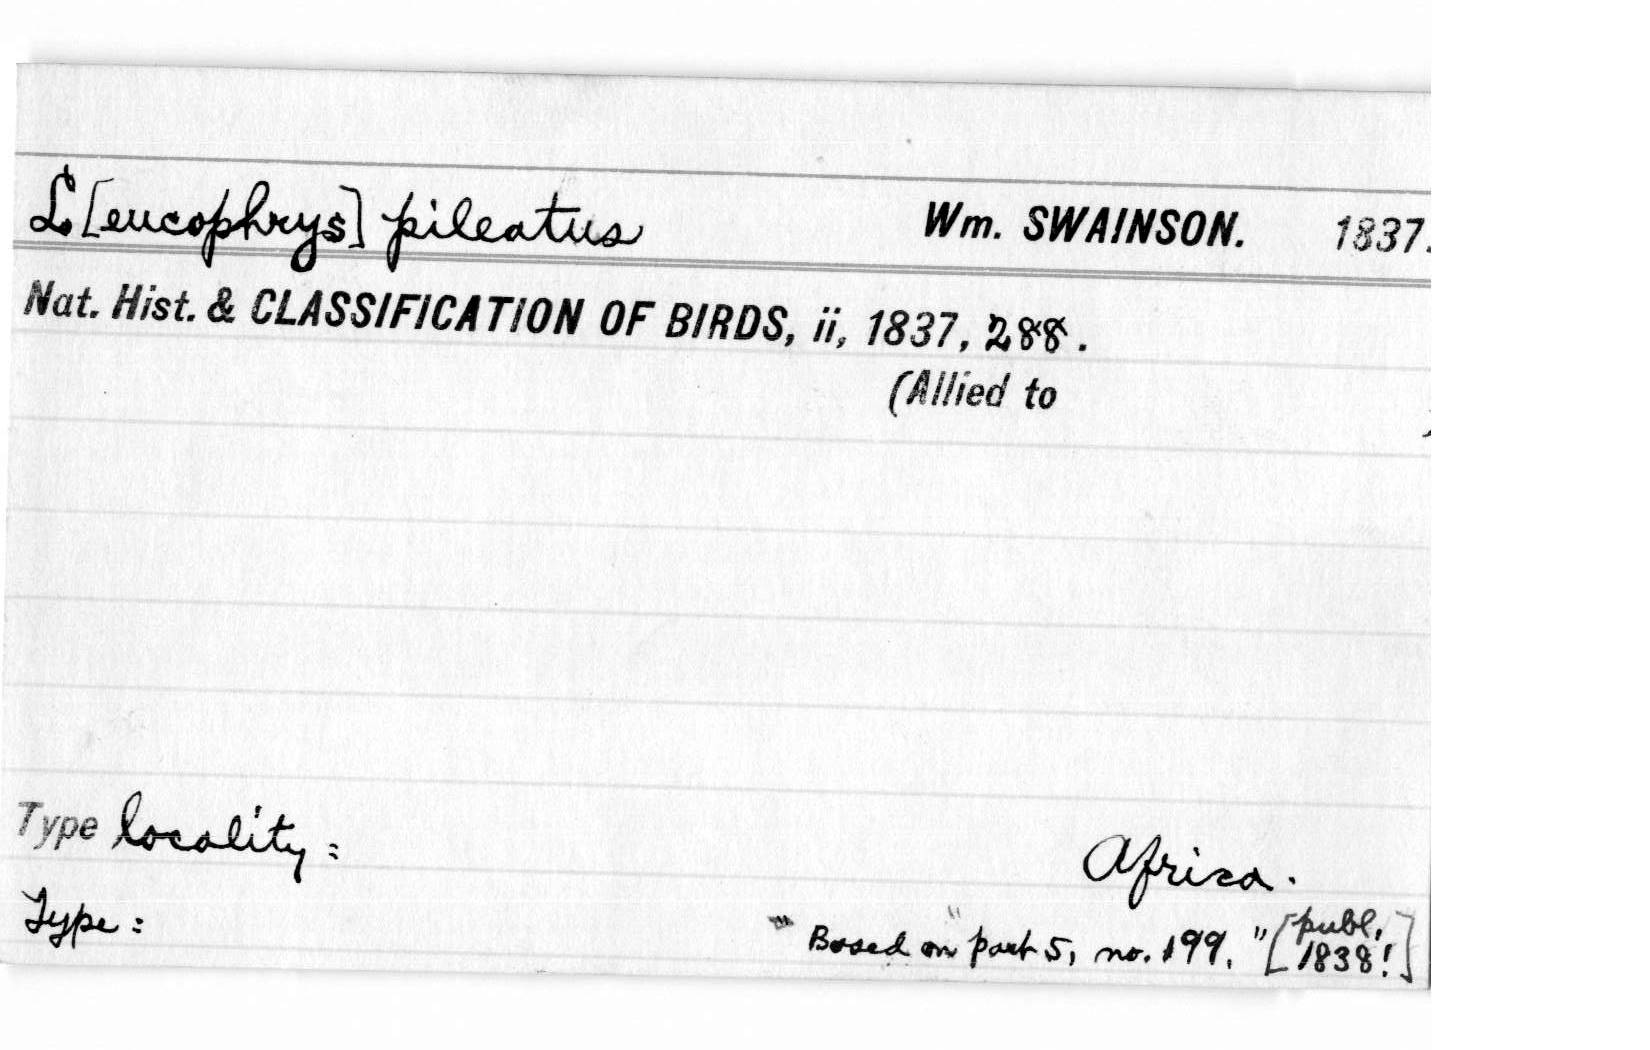 L[eucophrys] pileatus Wm. SWAINSON. 1837.
Nat. Hist. & CLASSIFICATION OF BIRDS, ii, 1837, 288.
(Allied to )
Type locality: Africa.
Type: Based on "part 5, no. 199." [publ. 1838!]